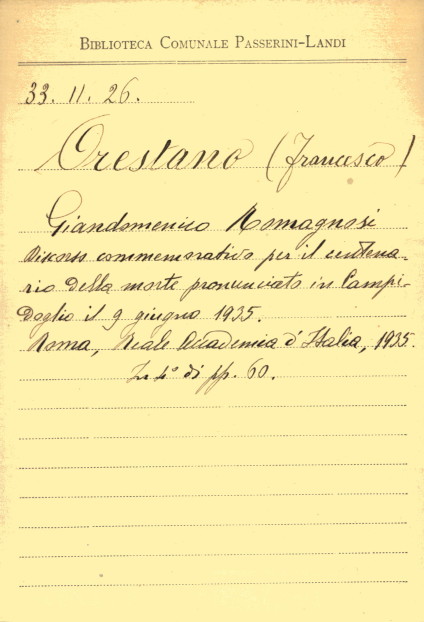 BIBLIOTECA COMUNALE PASSERINI-LANDI
33. 11. 26.
Orestano (Francesco)
Giandomenico Romagnosi
Discorso commemorativo per il centena-
rio della morte pronunciato in Campi-
doglio il 9 giugno 1935.
Roma, Reale Accademia d'Italia, 1935.
In 4° di pp. 60.